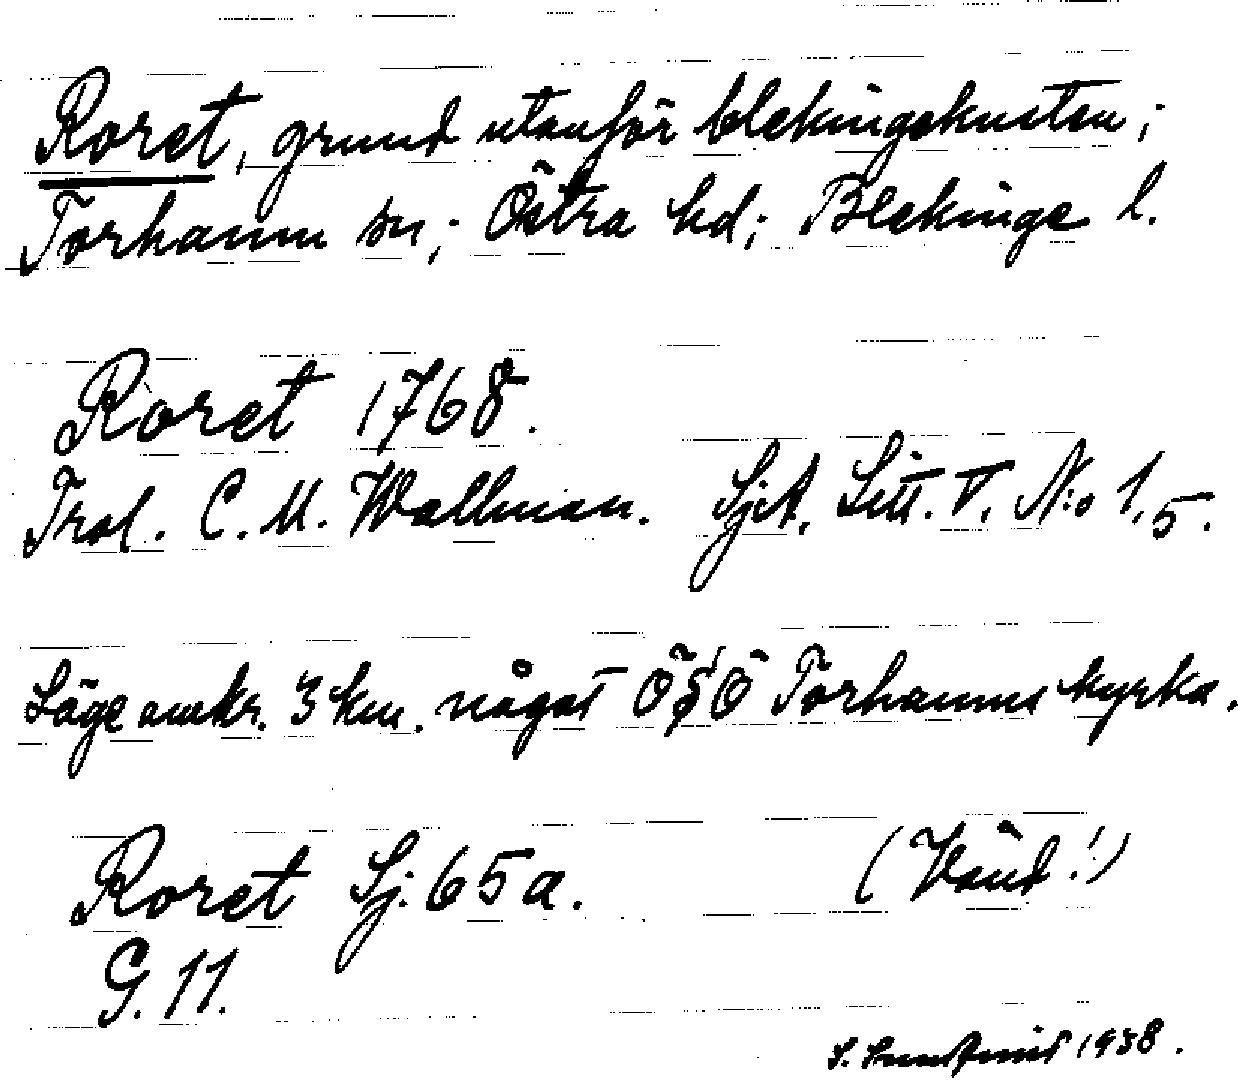 Roret, grund utanför blekingekusten;
Torhamn sn; Östra hd; Blekinge l.
Roret 1768.
Trol. C. M. Wallman. SjA. Litt. V. N:o 1,5.
Läge omkr. 3 km. något Ö§Ö Torhamns kyrka.
Roret Sj. 65a. (Vänd!)
G. 11.
S. 1938.